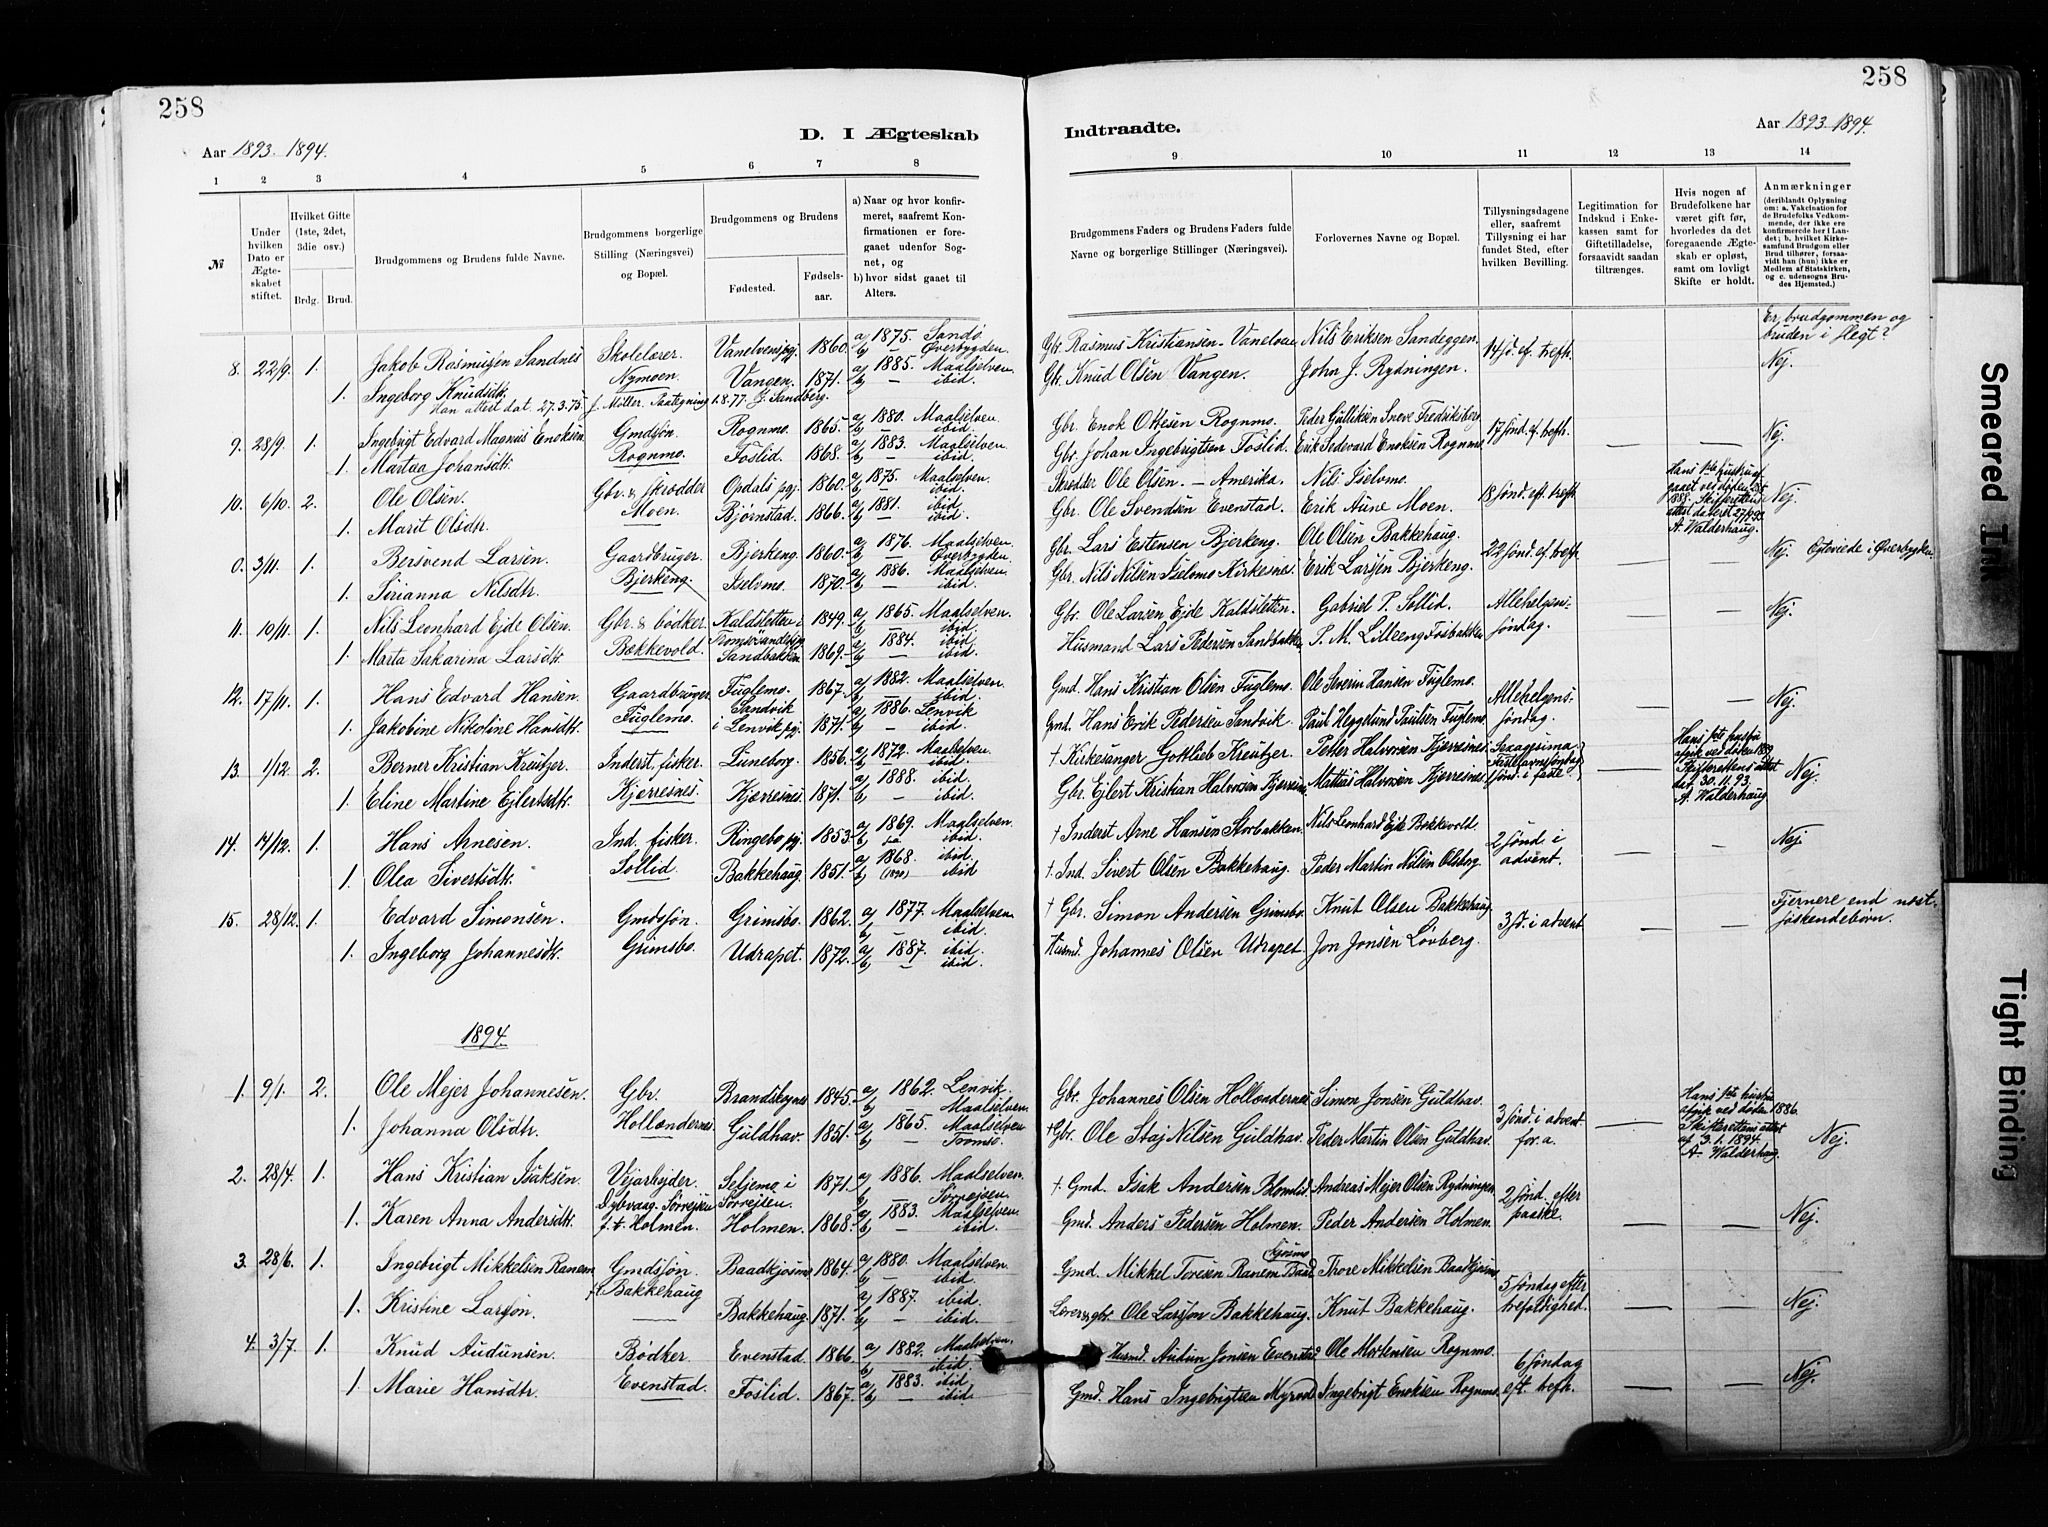 258
258
Aar 1893. 1894.
D. I Ægteskab
Indtraadte.
Aar 1893. 1894.
1 2 3 4 5 6 7 8
9 10 11 12 13 14
№
Under hvilken Dato er Ægteskabet stiftet.
Hvilket Gifte (1ste, 2det, 3die osv.)
Brdg. Brud.
Brudgommens og Brudens fulde Navne.
Brudgommens borgerlige Stilling (Næringsvei) og Bopæl.
Brudgommens og Brudens
Fødested.
Fødselsaar.
a) Naar og hvor konfirmeret, saafremt Konfirmationen er foregaaet udenfor Sognet, og
b) hvor sidst gaaet til Alters.
Brudgommens Faders og Brudens Faders fulde Navne og borgerlige Stillinger (Næringsvei).
Forlovernes Navne og Bopæl.
Tillysningsdagene eller, saafremt Tillysning ei har fundet Sted, efter hvilken Bevilling.
Legitimation for Indskud i Enkekassen samt for Giftetilladelse, forsaavidt saadan tiltrænges.
Hvis nogen af Brudefolkene har været gift før, hvorledes da det foregaaende Ægteskab er opløst, samt om lovligt Skifte er holdt.
Anmærkninger (deriblandt Oplysning om: a. Vakcination for de Brudefolks Vedkommende, der ikke ere konfirmerede her i Landet; b. hvilket Kirkesamfund Brudgom eller Brud tilhører, forsaavidt han (hun) ikke er Medlem af Statskirken, og c. udensogns Brudes Hjemsted.)
Er brudgommen og
bruden i slegt?
8. 22/9. 1. Jakob Rasmusen Sandnes Skolelærer. Vanelvens pgj. 1860. a) 1875. Sandø b) — Øverbygden Gbr. Rasmus Kristiansen - Vanelven Nils Eriksen Sandeggen. 14 sd. ef. trefh. Nej.
1. Ingeborg Knudsdtr. Nymoen. Vangen. 1871. a) 1885. Maalselven. b) — ibid. Gbr. Knud Olsen Vangen. John J. Rydningen.
Han attest dat. 27.3.75. J. Møller. Paategning 1.8.77. G. Sandberg.
9. 28/9. 1. Ingebrigt Edvard Magnus Enoksen. Gmdsøn. Rognmo. 1865. a) 1880. Maalselven. b) — ibid. Gbr. Enok Ottesen Rognmo. Peder Gulliksen Sneve Fredriksberg. 17 sønd. ef. trefh. — — Nej.
1. Martaa Johansdtr. Rognmo. Foslid. 1868. a) 1883. Maalselven. b) — ibid. Gbr. Johan Ingebrigtsen Foslid. Erik Sedevard Enoksen Rognmo.
10. 6/10. 2. Ole Olsen. Gbr. & Skrædder Opdals pgj. 1860. a) 1875. Maalselven. b) — ibid. Skrædder Ole Olsen. - Amerika. Nils Iselvmo. 18 sønd. eft. trefh. — Hans 1ste hustru af gaaet ved døden 1888. Skifterettens attest dateret 27/9 93. A. Walderhaug. Nej
1. Marit Olsdtr. Moen. Bjørnstad. 1866. a) 1881. ibid. b) — ibid. Gbr. Ole Svendsen Evenstad. Erik Aune Moen.
0. 3/11. 1. Bersvend Larsen. Gaardbruger. Bjerkeng. 1860. a) 1876. Maalselven b) — Øverbygden Gbr. Lars Estensen Bjerkeng. Ole Olsen Bakkehaug. 22 sønd. ef. trefh. — — Nej. Egteviede i Øverbygden
1. Sørianna Nilsdtr. Bjerkeng. Iselvmo. 1870. a) 1886. Maalselven. b) — ibid. Gbr. Nils Nilsen Iselvmo Kirkesnes. Erik Larsen Bjerkeng.
11. 10/11. 1. Nils Leonhard Ejde Olsen. Gbr. & bødker. Kaldsletten i Tromsøsundets pgj. 1849. a) 1865. Maalselven. b) — ibid. Gbr. Ole Larsen Ejde Kaldsletten. Gabriel P. Sollid. Allehelgens søndag. — — Nej.
1. Marta Sakarina Larsdtr. Bækkevold. Sandbakken 1869. a) 1884. ibid. b) — ibid. Husmand Lars Pedersen Sandbakken P. M. Lilleeng Fosbakken
12. 17/11. 1. Hans Edvard Hansen. Gaardbruger. Fuglemo. 1867. a) 1882. Maalselven b) — ibid. Gmd. Hans Kristian Olsen Fuglemo. Ole Severin Hansen Fuglemo. Allehelgens søndag. — — Nej.
1. Jakobine Nikoline Hansdtr. Fuglemo. Sandvik i Lenvik pgj. 1871. a) 1886. Lenvik b) — ibid. Gmd. Hans Erik Pedersen Sandvik. Paul Heggelund Paulsen Fuglemo
13. 1/12. 2. Berner Kristian Kreutzer. Inderst. fisker. Luneborg. 1856. a) 1872. Maalselven. b) — ibid. † Kirkesanger Gottlieb Kreutzer. Petter Halvorsen Kjerresnes. Sexagesima. Fastelavnssøndag 1 sønd. i faste — Hans 1ste hustru afgik ved døden 1889. Skifterettens attest dat. 30.11.93. A. Walderhaug Nej.
1. Eline Martine Ejlertsdtr. Kjerresnes. Kjerresnes. 1871. a) 1888. ibid. b) — ibid. Gbr. Ejlert Kristian Halvorsen Kjerresnes. Mattias Halvorsen Kjerresnes.
14. 14/12. 1. Hans Arnesen. Ind. fisker. Ringebo pgj. 1853. a) 1869. Maalselven. b) — ibid. † Inderst Arne Hansen Storbakken. Nils Leonhard Ejde Bækkevold. 2 sønd. i advent. — — Nej.
1. Olea Sivertsdtr. Sollid. Bakkehaug. 1851. a) 1868. ibid. b) ibid † Ind. Sivert Olsen Bakkehaug. Peder Martin Nilsen Olsborg.
15. 28/12. 1. Edvard Simonsen. Gmdsøn. Grimsbo. 1862. a) 1877. Maalselven. b) — ibid. † Gbr. Simon Andersen Grimsbo. Knut Olsen Bakkehaug. 3 sd. i advent — — Fjernere end næst-søskendebørn.
1. Ingeborg Johannesdtr. Grimsbo. Udrapet. 1872. a) 1887. ibid. b) — ibid. Husmd. Johannes Olsen Udrapet. Jon Jonsen Løvberg.
1894.
1. 9/1. 2. Ole Mejer Johannesen. Gbr. Brandskognes 1845. a) 1862. Lenvik. b) — Maalselven. Gbr. Johannes Olsen Hollændernes. Simon Jonsen Guldhav. 3 sønd. i advent for. a. — Hans 1ste hustru afgik ved døden 1886. Skifterettens attest af 3.1.1894. A. Walderhaug. Nej.
1. Johanna Olsdtr. Hollændernes. Guldhav. 1851. a) 1865. Maalselven b) — Tromsø. † Gbr. Ole Staj Nilsen Guldhav. Peder Martin Olsen Guldhav.
2. 28/4. 1. Hans Kristian Isaksen. Vejarbejder. Seljemo i Sørrejsen. 1871. a) 1886. Maalselven. b) Sørrejsen. † Gmd. Isak Andersen Blomlid. Andreas Mejer Olsen Rydningen. 2 sønd. efter paaske. — — Nej.
1. Karen Anna Andersdtr. Dybvaag. Sørrejsen f. t. Holmen. Holmen. 1868. a) 1883. Maalselven b) — ibid. Gmd. Anders Pedersen Holmen. Peder Andersen Holmen.
3. 28/6. 1. Ingebrigt Mikkelsen Ranem Gmdsøn. Baadkjosmo 1864. a) 1880. Maalselven. b) — ibid. Gmd. Mikkel Toresen Ranem Baadkjosmo Thore Mikkelsen Baadkjosmo. 5 søndag efter trefoldighed. — — Nej.
1. Kristine Larsøn. Bakkehaug Bakkehaug. 1871. a) 1887. ibid. b) — ibid. Lærer & gbr. Ole Larsøn Bakkehaug. Knut Bakkehaug.
4. 3/7. 1. Knud Audunsen. Bødker. Evenstad. 1866. a) 1882. Maalselven. b) — ibid. Husmd. Audun Jonsen Evenstad. Ole Mortensen Rognmo. 6 søndag eft. trefh. — — Nej.
1. Marie Hansdtr. Evenstad. Foslid. 1867. a) 1883. ibid. b) — ibid. Gmd. Hans Ingebrigtsen Myrvold Ingebrigt Enoksen Rognmo.
Smeared Ink
Tight Binding